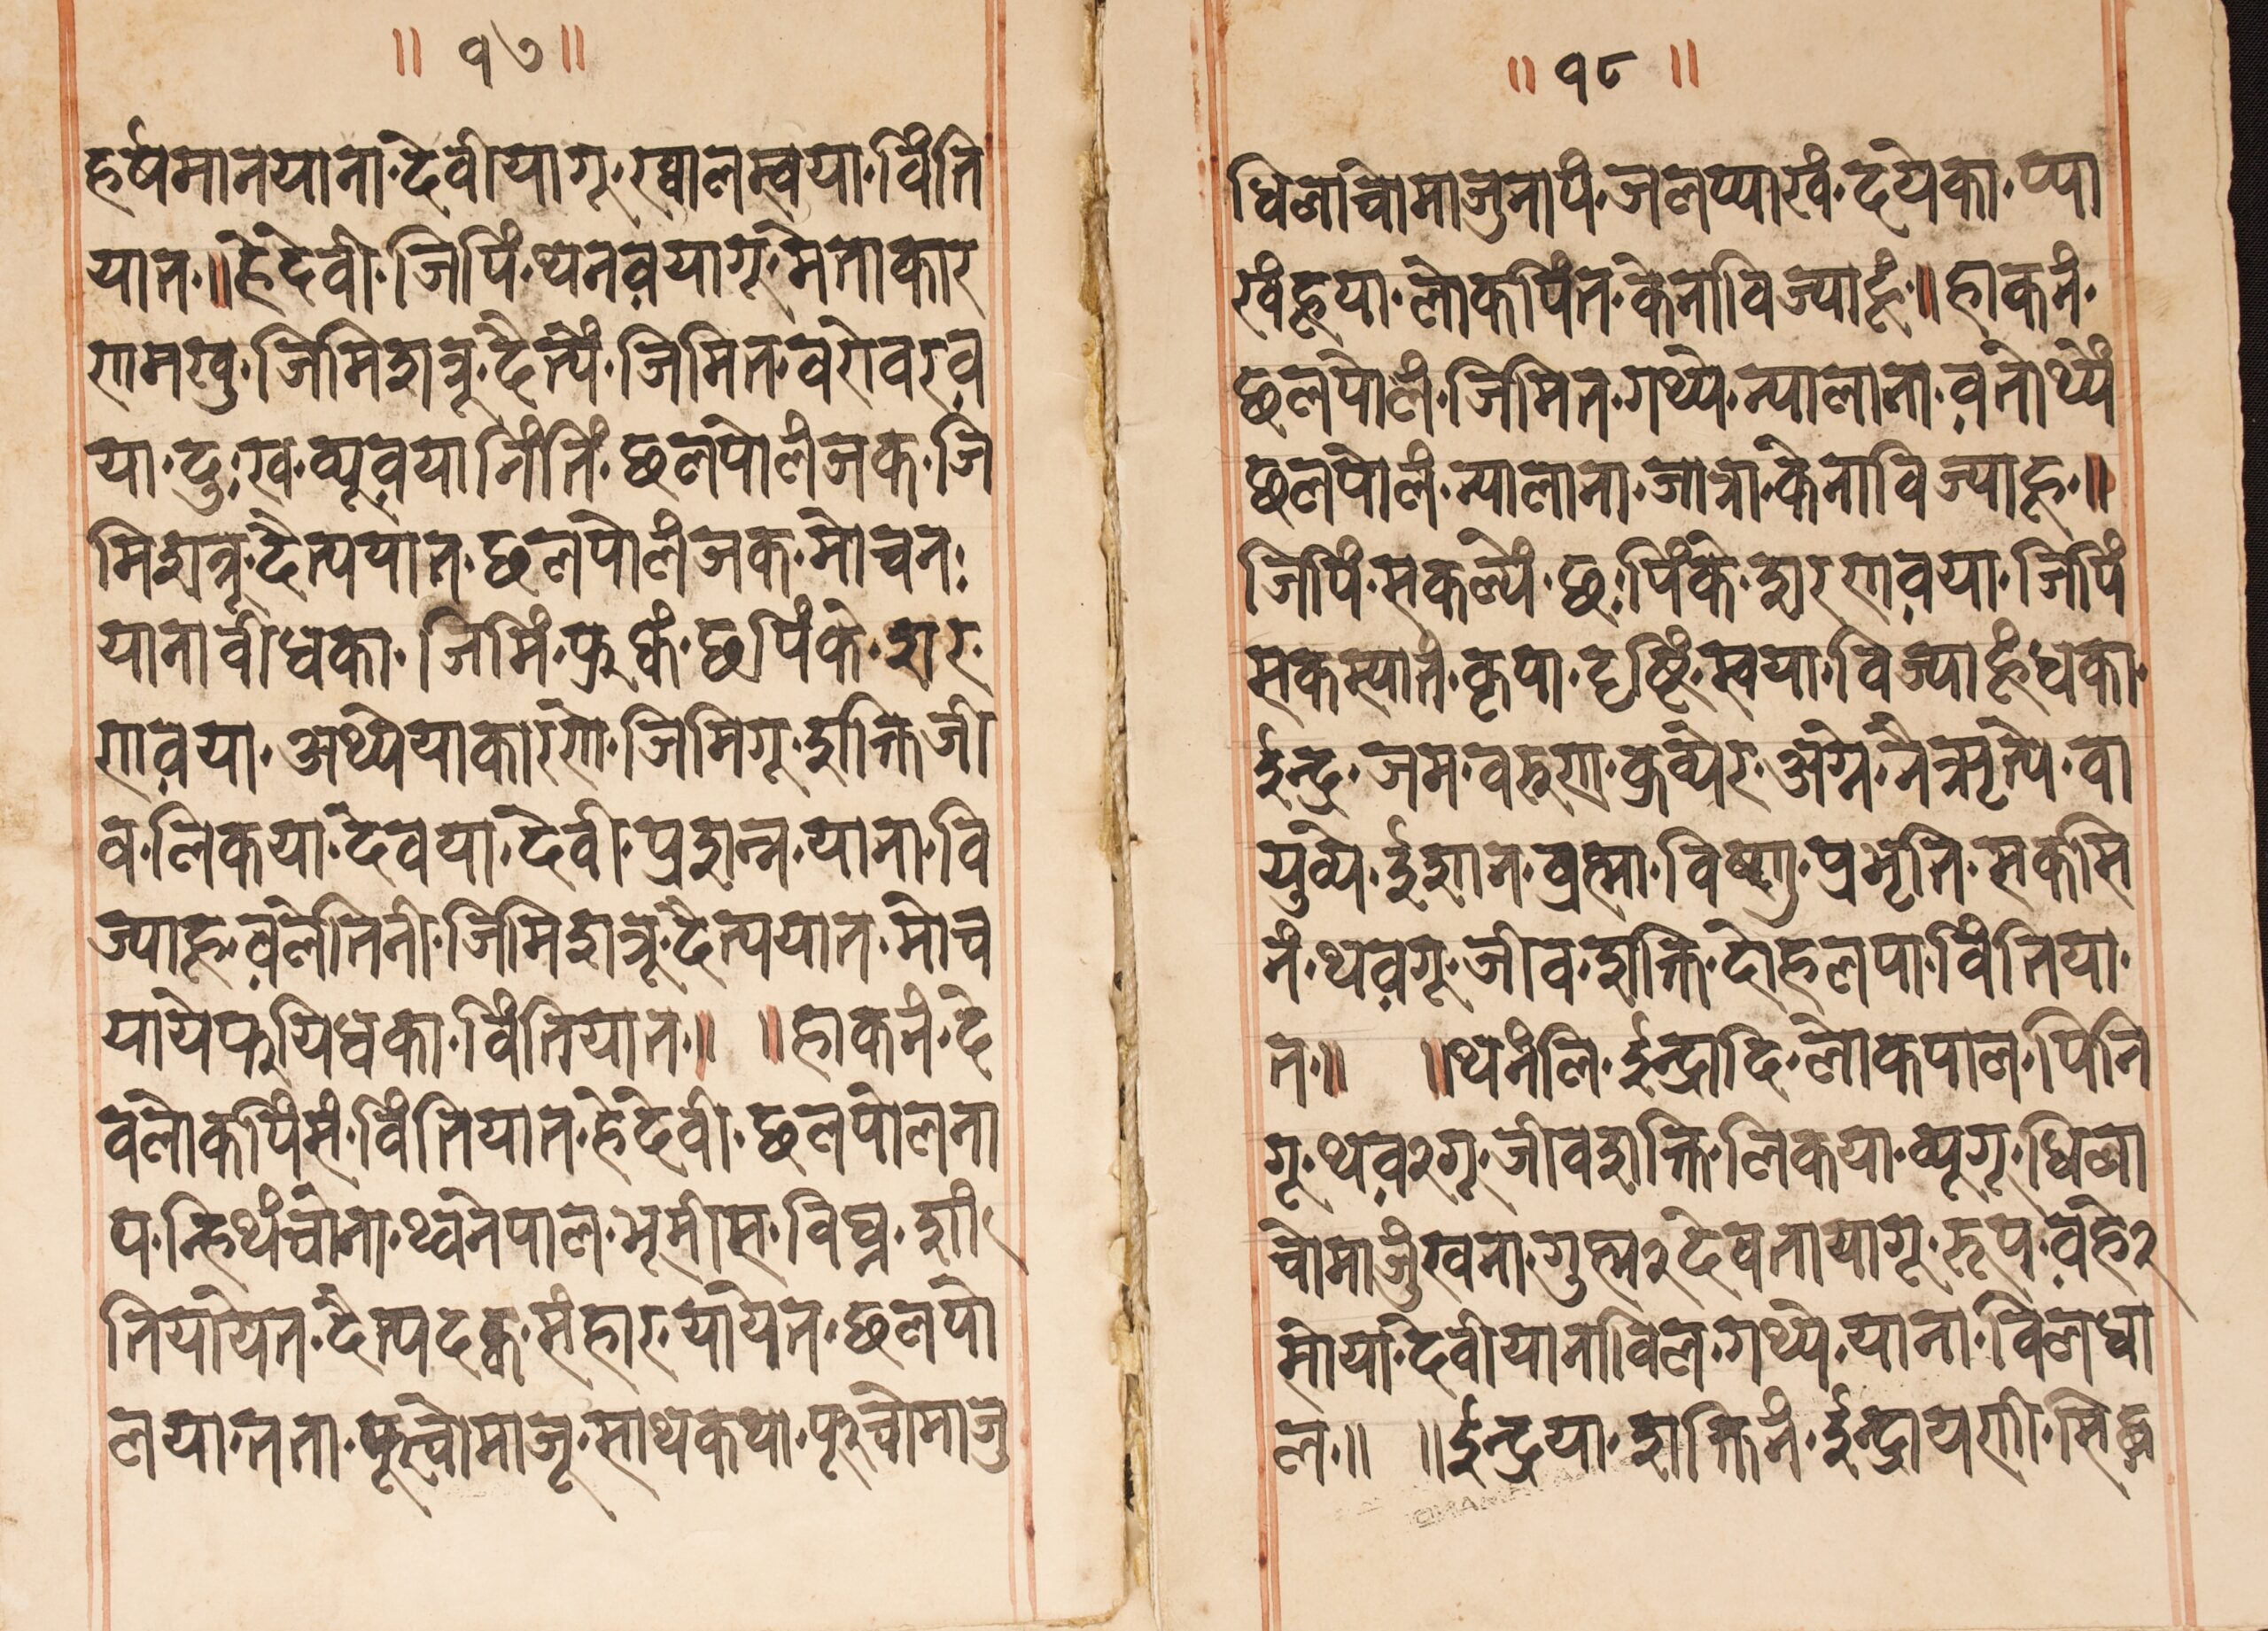 ॥ १७ ॥
हर्षमानयाना·देवीयागू·ख्वालस्वया·विंति
यात·॥हेदेवी·जिपिं·थनव़यागू·मेताकार
णमखु·जिमिशत्रू·दैत्यें·जिमित·वरोवरव़
या·दुःख·व्यूव़यानिंतिं·छलपोलंजक·जि
मिशत्रू·दैत्ययात·छलपोलंजक·मोचन·
यानावीधका·जिमिं·फुकं·छपिंके·शर·
णव़या·अथ्येयाकारणे·जिमिगू·शक्तिजी
व·लिकया·देवया·देवी·प्रशन्न·याना·वि
ज्याहू·व़लेतिनी·जिमिशत्रू·दैत्ययात·मोच
यायेफयिधका·विंतियात·॥ ॥हाकनं·दे
वलोकपिंसं·विंतियात·हेदेवी·छलपोलना
प·न्हिथंचोना·थ्वनेपाल·भूमीस·विघ्न·शीं
तियायेत·दैत्यदक्व·संहार·यायेत·छलपो
लया·तता·फूत्चोमाजू·साथकथा·फूत्चोमाजु
॥ १८ ॥
धिलाचोमाजुनापं·जलप्याखं·दयेका·प्या
खंहूया·लोकपिंत·केनाविज्याहूं·॥हाकनं·
छलपोलं·जिमित·गथ्ये·न्यालाना·व़नोथ्यें
छलपोलं·न्यालाना·जात्रा·केनाविज्याहू·॥
जिपिं·सकल्यें·छःपिंके·शरणव़या·जिपिं
सकस्यातं·कृपा·दृष्टिं·स्वया·विज्याहूंधका·
ईन्द्र·जम·वरुण·कूव्येर·अग्ने·नैऋत्ये·वा
युव्ये·ईशान·ब्रह्मा·विष्णु·प्रभृति·सकसि
नं·थव़गू·जीव·शक्ति·दोहलपा·विंतिया·
त·॥ ॥थनंलि·ईन्द्रादि·लोकपाल·पिनि
गू·थव़२गू·जीवशक्ति·लिकया·व्यूगू·धिला
चोमाजुंखना·गुह्म२देवतायागू·रूप·व़हे२
मोर्या·देवीयानाविल·गथ्ये·याना·विलधा
ल·॥ ॥ईन्द्रया·शक्तिनं·ईन्द्रायणी·सिद्ध